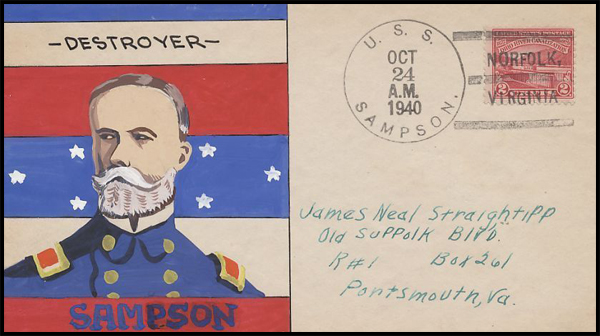 -DESTROYER-
SAMPSON
U. S. S.
OCT
24
A.M.
1940
SAMPSON.
NORFOLK,
VIRGINIA
2 2
James Neal Straightipp
Old Suffolk Blvd.
R#1 Box 261
Portsmouth, Va.